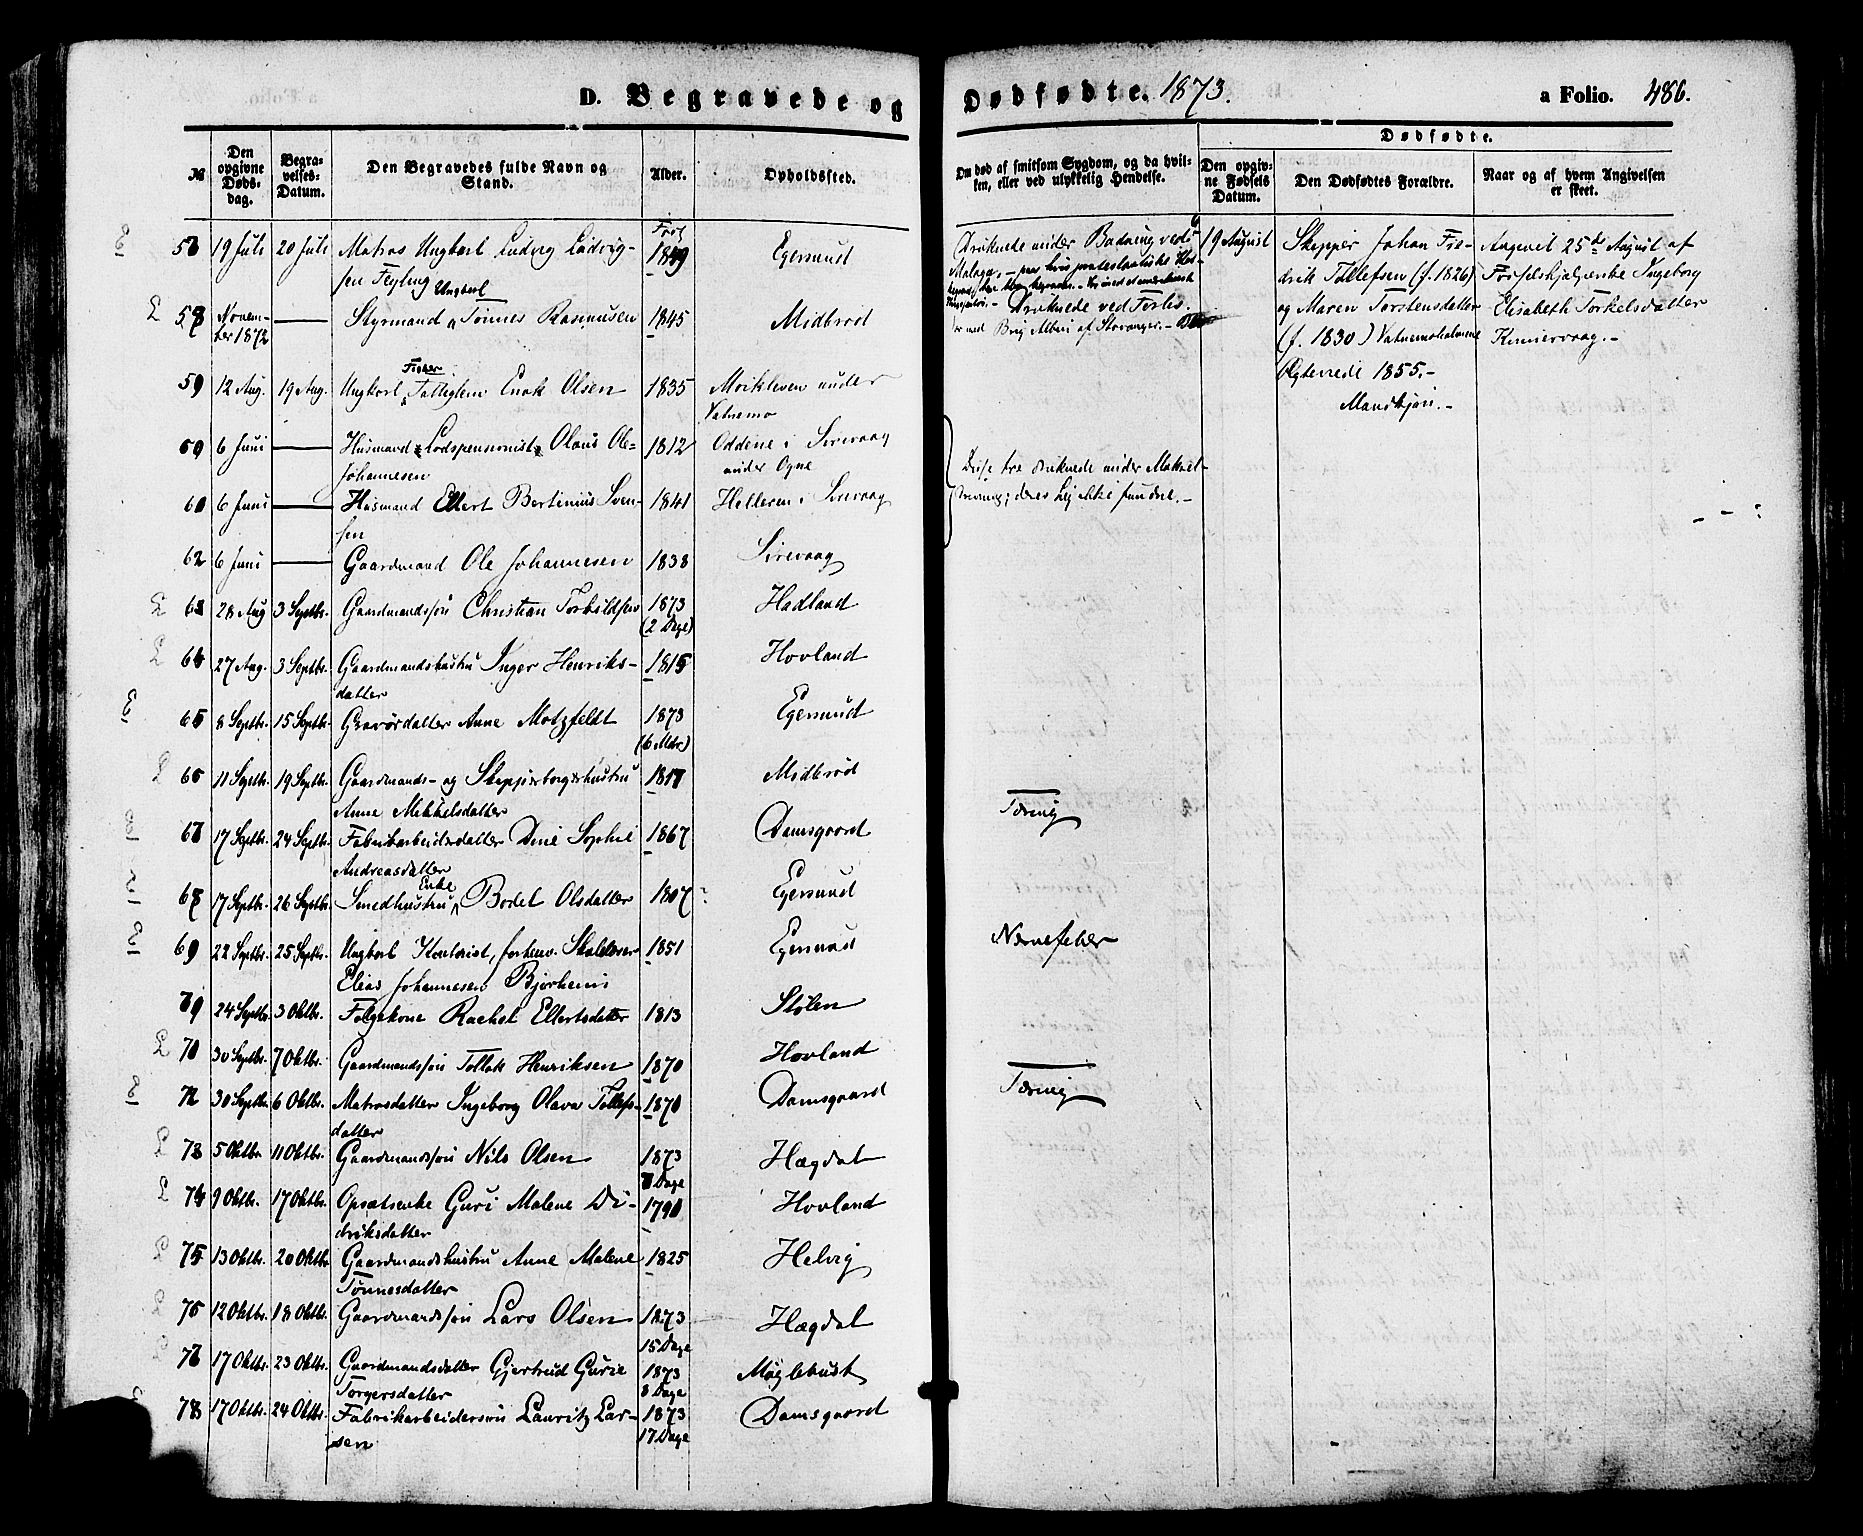 D. Begravede og Dødfødte. 1873. a Folio. 486.
№
Den opgivne Døds-dag.
Begra-velses-Datum.
Den Begravedes fulde Navn og Stand.
Alder.
Opholdssted.
Om død af smitsom Sygdom, og da hvil-ken, eller ved ulykkelig Hendelse.
Dødfødte.
Den opgiv-ne Fødsels Datum.
Den Dødfødtes Forældre.
Naar og af hvem Angivelsen er skeet.
19 Juli 20 Juli Matros Ungkarl Ludvig Ludvig- 1849 Egersund
sen Feyling
Druknede under Badning ved
Malaga
Novem-ber 1872 — Styrmand Ungkarl Tønnes Rasmussen 1845 Midbrød
Druknede ved Forlis
med Brig Albert af Stavanger. —
59 12 Aug. 19 Aug. Ungkarl Fisker Enok Olsen 1835 Moikleven under
Vatnemo
6 Juni — Husmand Lodspensionist Olaus Ole- 1812 Oddene i Sirevaag
Johannesen under Ogne
60 6 Juni — Husmand Ellert Bertinius Sven- 1841 Helleren i Sirevaag
sen
62 6 Juni — Gaardmand Ole Johannesen 1838 Sirevaag
Disse tre druknede under Makrel-
; deres Lig ikke fundne. —
28 Aug 3 Septbr. Gaardmandssøn Christian Torkildsen 1873 Hadland
(2 Dage)
64 27 Aug. 3 Septbr. Gaardmandshustru Inger Henriks- 1815 Hovland
datter
65 8 Septbr. 15 Septbr. Gravørdatter Anne Motzfeldt 1873 Egersund
(6 Mdr.)
11 Septbr. 19 Septbr. Gaardmands- og Skipperborgerhustru 1817 Midbrød
Anne Mekkelsdatter
17 Septbr. 24 Septbr. Fabrikarbeiderdatter Dine Sophie 1867 Damsgaard Tæring
Andreasdatter
17 Septbr. 26 Septbr. Smedhustru Enke Bodel Olsdatter 1807 ? Egersund
69 22 Septbr. 25 Septbr. Ungkarl Kontorist, forhenv. Skolelærer 1851 Egersund Nervefeber
Elias Johannesen Bjørheim
24 Septbr. 3 Oktbr. Følgekone Rachel Ellertsdatter 1813 Stølen
30 Septbr. 7 Oktbr. Gaardmandssøn Tollak Henriksen 1870 Hovland
72 30 Septbr. 6 Oktbr. Matrosdatter Ingeborg Olava Tollefs- 1870 Damsgaard Tæring
datter
73 5 Oktbr. 11 Oktbr. Gaardmandssøn Nils Olsen 1873 Hægdal
8 Dage
74 9 Oktbr. 17 Oktbr. Opsætsenke Guri Malene Di- 1790 Hovland
driksdatter
75 13 Oktbr. 20 Oktbr. Gaardmandshustru Anne Malene 1825 Helvig
Tønnesdatter
12 Oktbr. 18 Oktbr. Gaardmandssøn Lars Olsen 1873 Hægdal
15 Dage
17 Oktbr. 23 Oktbr. Gaardmandsdatter Gjertrud Gurie 1873 Møglebust
Torgersdatter 8 Dage
78 17 Oktbr. 24 Oktbr. Fabrikarbeidersøn Lauritz Lar- 1873 Damsgaard
sen 17 Dage
19 August
Skipper Johan Fre-
drik Tollefsen (f. 1826)
og Maren Torstensdatter
(f. 1830) Vatnemoholmene
Ægteviede 1855. —
Mandkjøn. —
Angivet 25de August af
Forløselshjælperske Ingeborg
Elisabeth Torkelsdatter